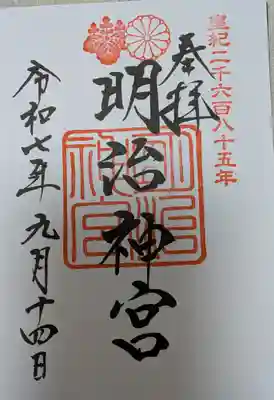 皇紀二千六百八十五年
奉拝
明治神宮
明治神宮
令和七年 九月十四日